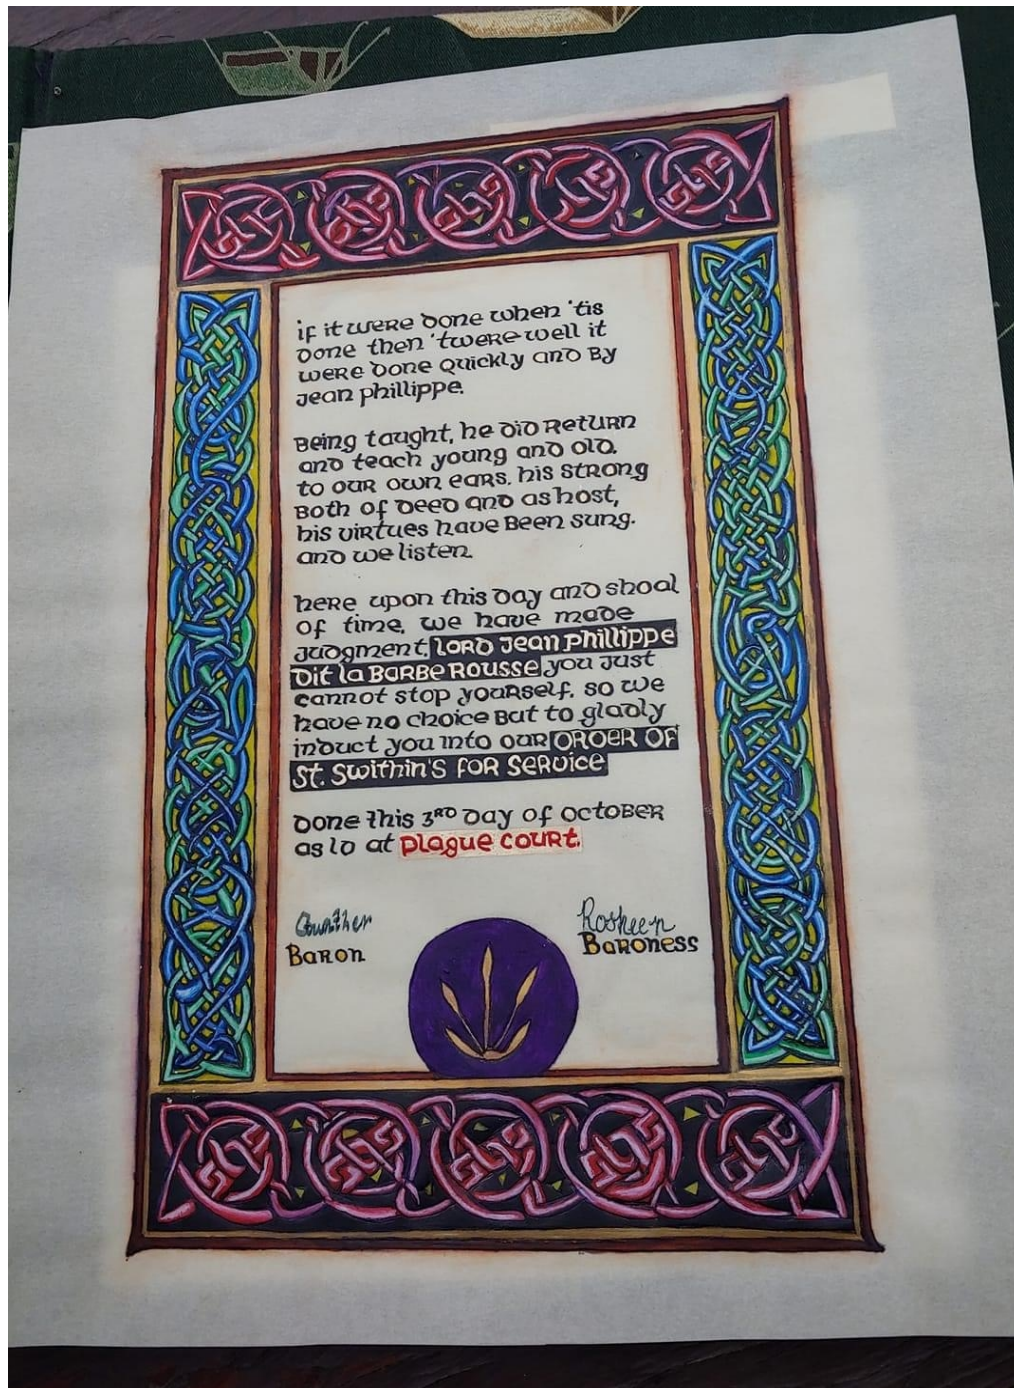 if it were done when 'tis
done then 'twere well it
were done quickly and by
jean phillippe.
Being taught, he did return
and teach young and old.
to our own ears. his strong
both of deed and as host,
his virtues have been sung.
and we listen.
here upon this day and shoal
of time, we have made
judgment, lord jean phillippe
dit la barbe rousse you just
cannot stop yourself. so we
have no choice but to gladly
induct you into our order of
St. Swithin's for service
Done this 3rd day of october
as lo at plague court.
Gunther
Rosheen
Baron
Baroness